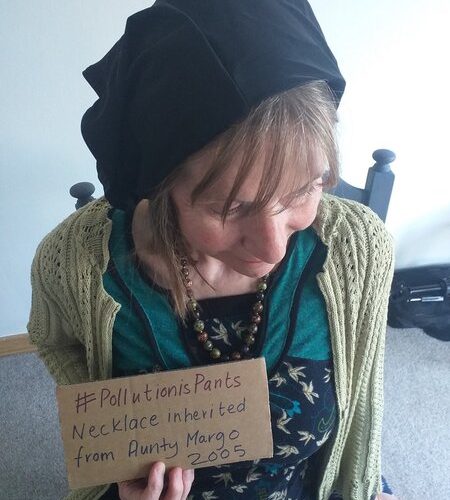 #PollutionisPants
Necklace inherited
from Aunty Margo
2005